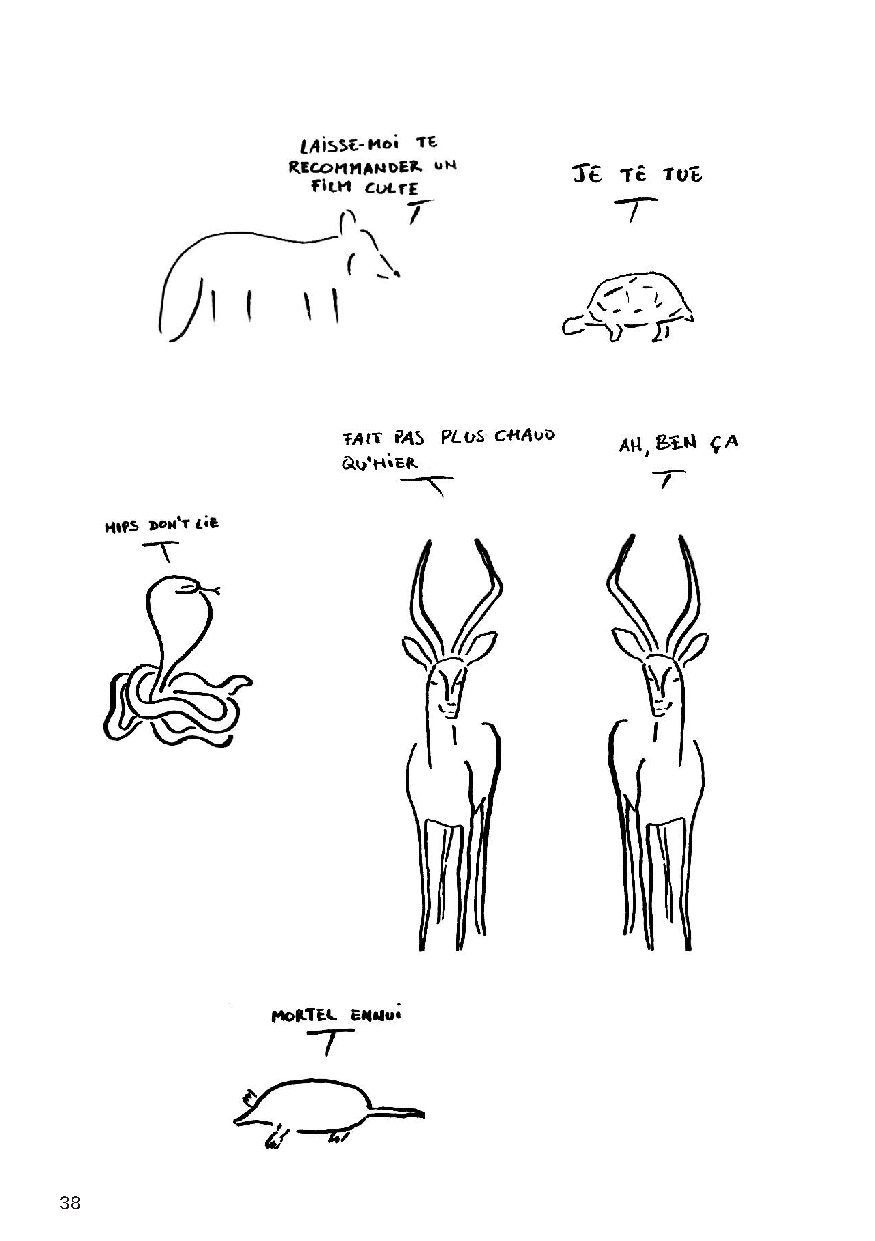 LAISSE-MOI TE
RECOMMANDER UN
FILM CULTE
JE TE TUE
FAIT PAS PLUS CHAUD
QU'HIER
AH, BEN ÇA
HIPS DON'T LIE
MORTEL ENNUI
38